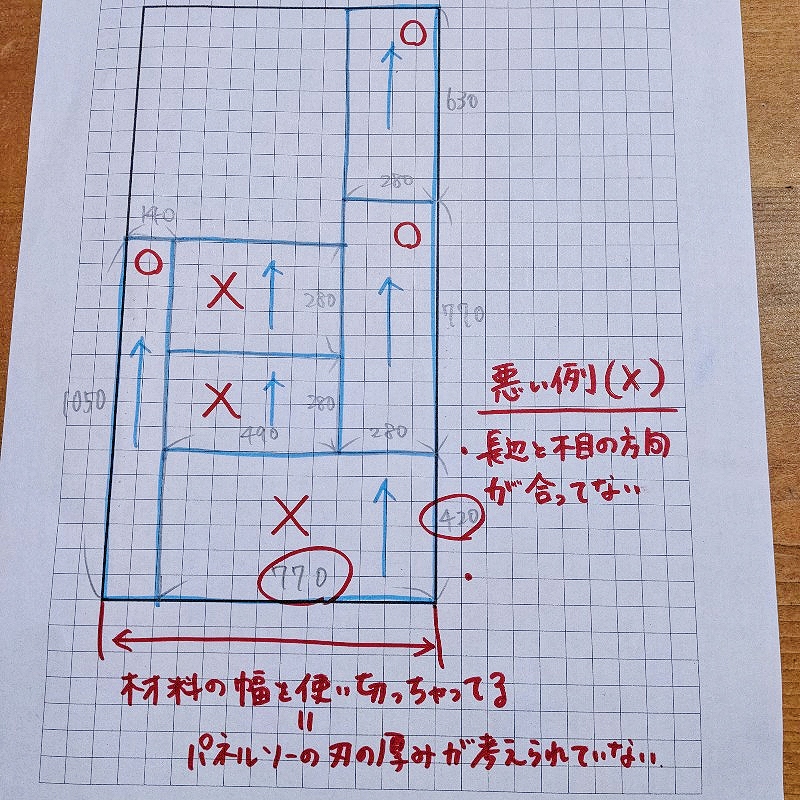 ○
630
280
140
○
○
X
280
770
1050
悪い例(X)
X
280
490
280
・長辺と木目の方向
が合ってない
X
420
770
・
材料の幅を使い切っちゃってる
=
パネルソーの刃の厚みが考えられていない